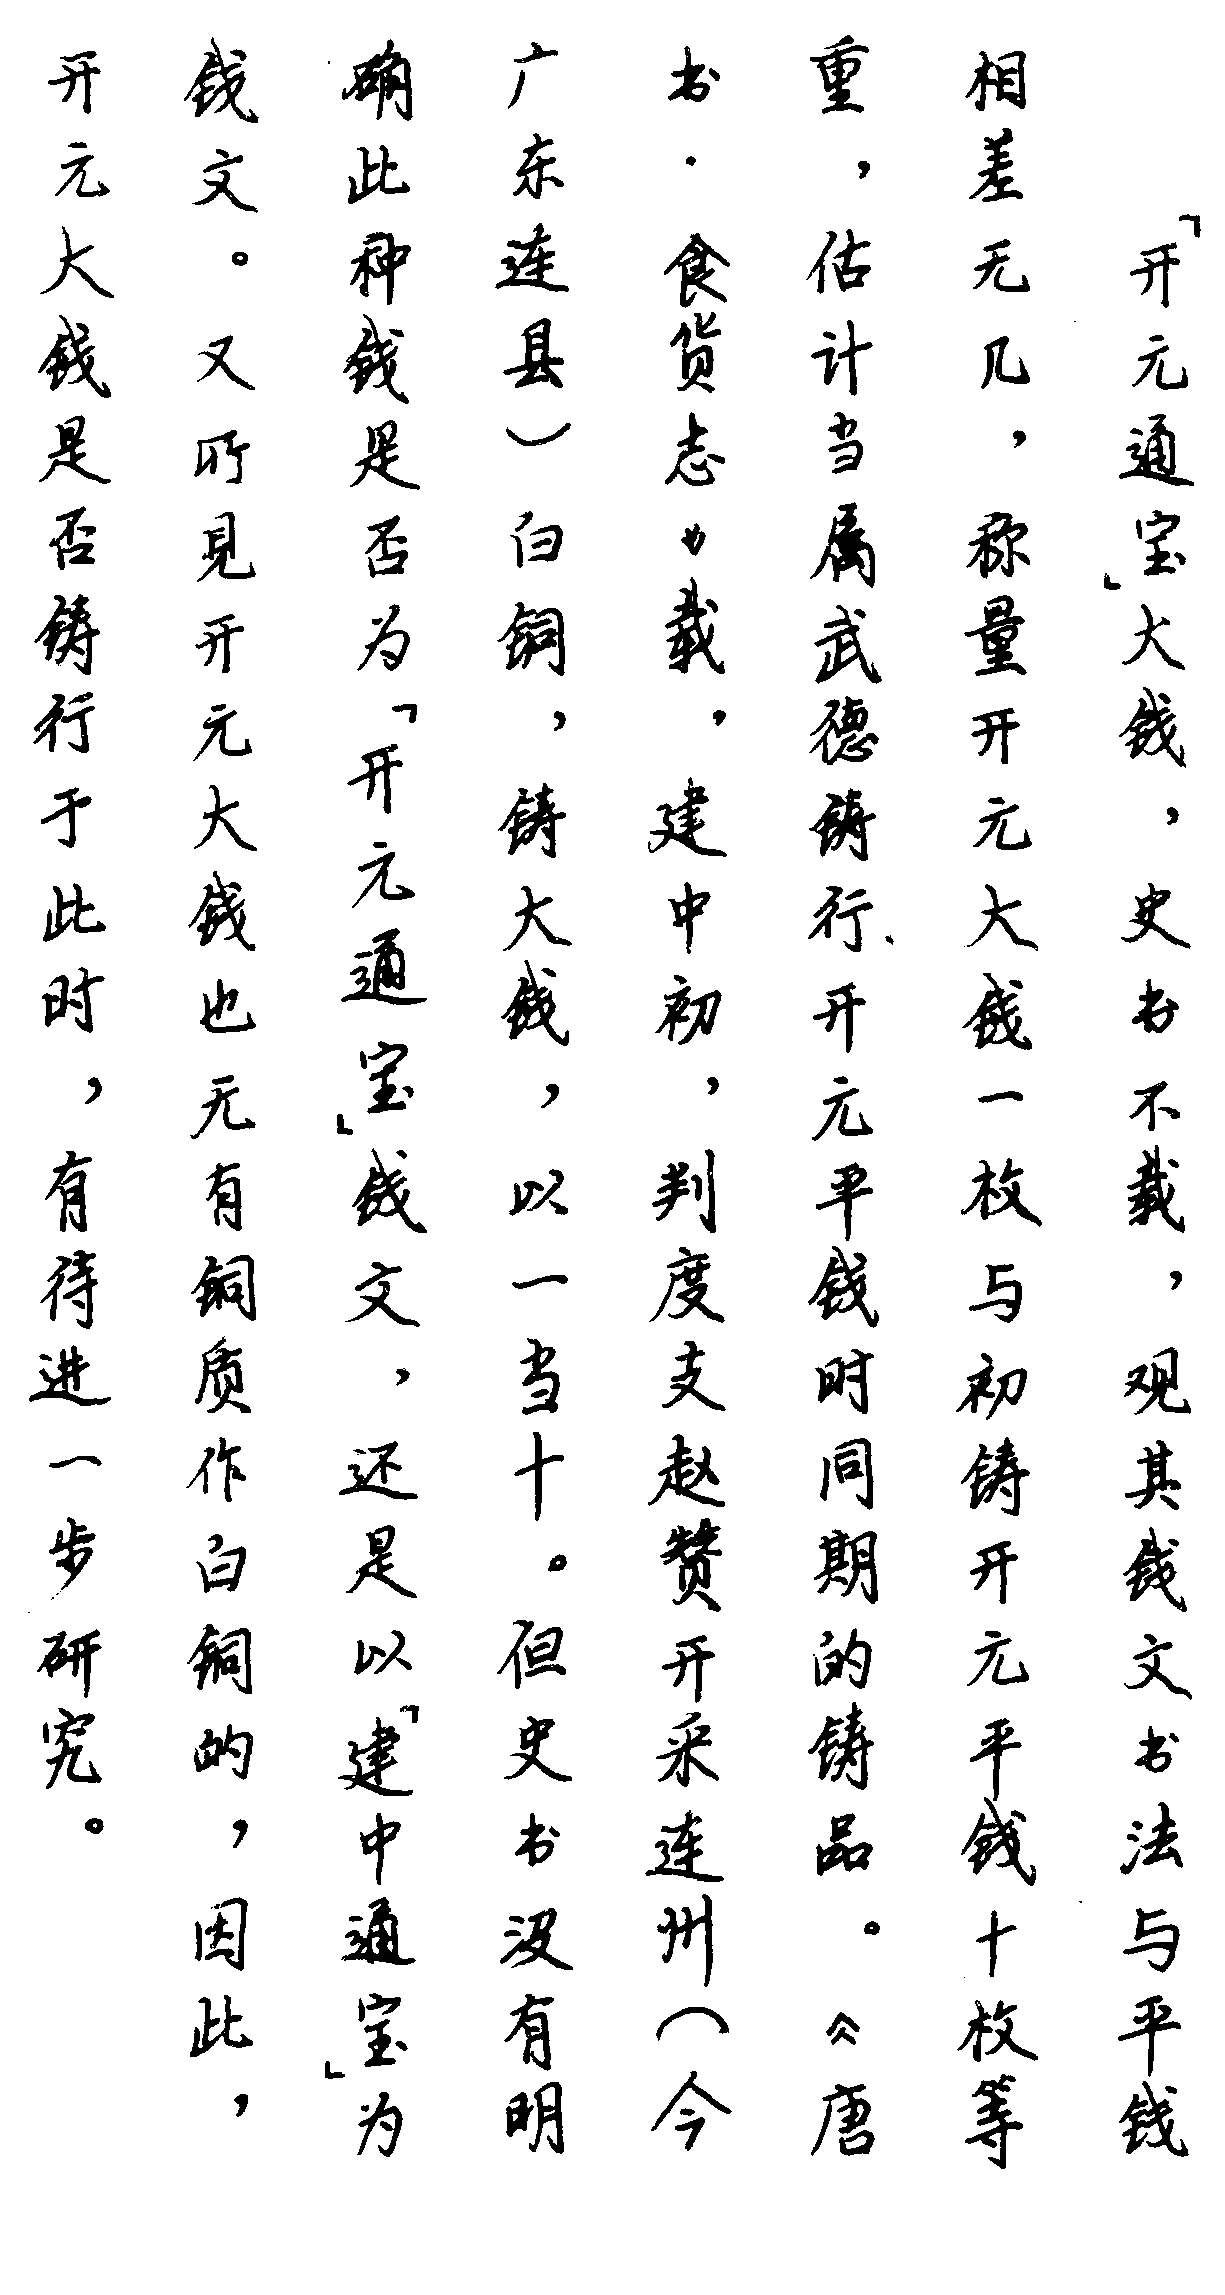 「开元通宝」大钱，史书不载，观其钱文书法与平钱
相差无几，称量开元大钱一枚与初铸开元平钱十枚等
重，估计当属武德铸行、开元平钱时同期的铸品。《唐
书·食货志》载，建中初，判度支赵赞开采连州（今
广东连县）白铜，铸大钱，以一当十。但史书没有明
确此种钱是否为「开元通宝」钱文，还是以「建中通宝」为
钱文。又所見开元大钱也无有铜质作白铜的，因此，
开元大钱是否铸行于此时，有待进一步研究。